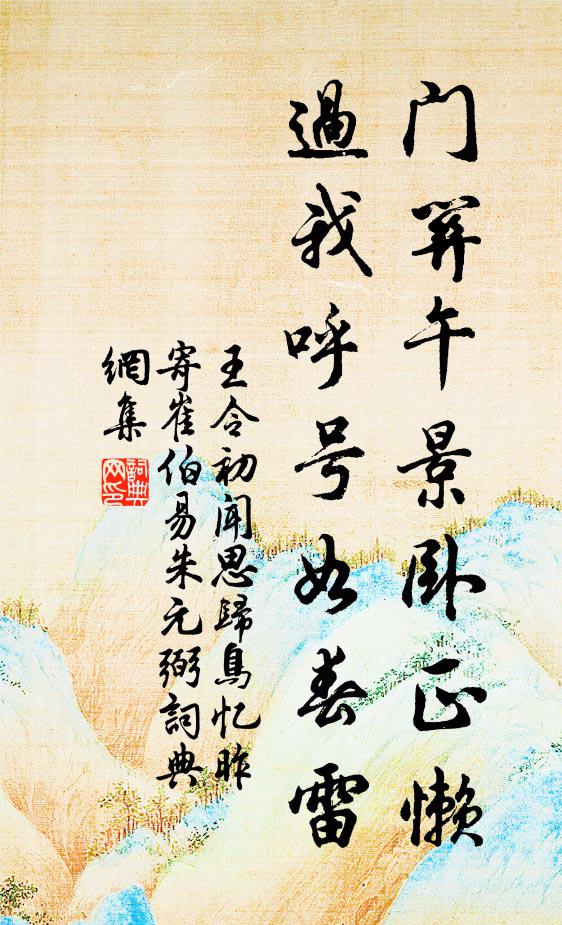 门开午景卧正懒
过我呼号如春雷
王令初闻思歸鳥忆昨
寄崔伯易朱元弼詞典
網集
詞典網印